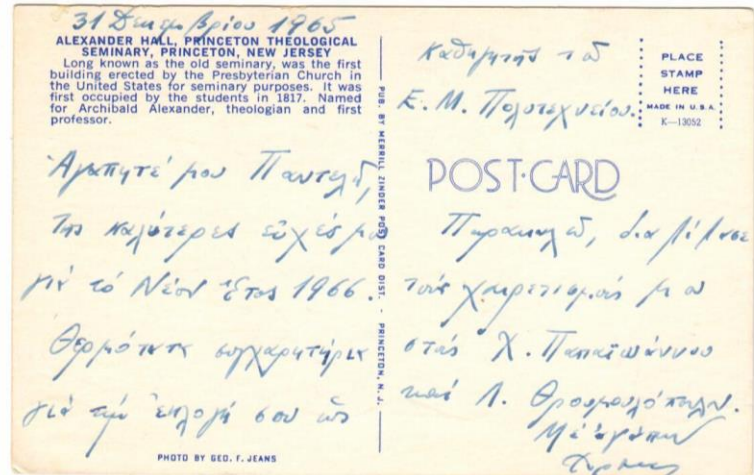 31 Δεκεμβρίου 1965
ALEXANDER HALL, PRINCETON THEOLOGICAL
SEMINARY, PRINCETON, NEW JERSEY
Long known as the old seminary, was the first
building erected by the Presbyterian Church in
the United States for seminary purposes. It was
first occupied by the students in 1817. Named
for Archibald Alexander, theologian and first
professor.
Ἀγαπητέ μου Παντελῆ,
Τις καλύτερες εὐχές μου
γιά τό Νέον Ἔτος 1966.
Θερμότατα συγχαρητήρια
γιά τήν ἐκλογή σου ὡς
PHOTO BY GEO. F. JEANS
PUB. BY MERRILL ZINDER POST CARD DIST. - PRINCETON, N. J.
Καθηγητής τοῦ
Ε. Μ. Πολυτεχνείου.
PLACE
STAMP
HERE
MADE IN U.S.A.
K-13052
POST-CARD
Παρακαλῶ, διαβίβασε
τούς χαιρετισμούς μου
στούς Χ. Παπαϊωάννου
καί Λ. Θρουμουλόπουλον.
Μέ ἀγάπην